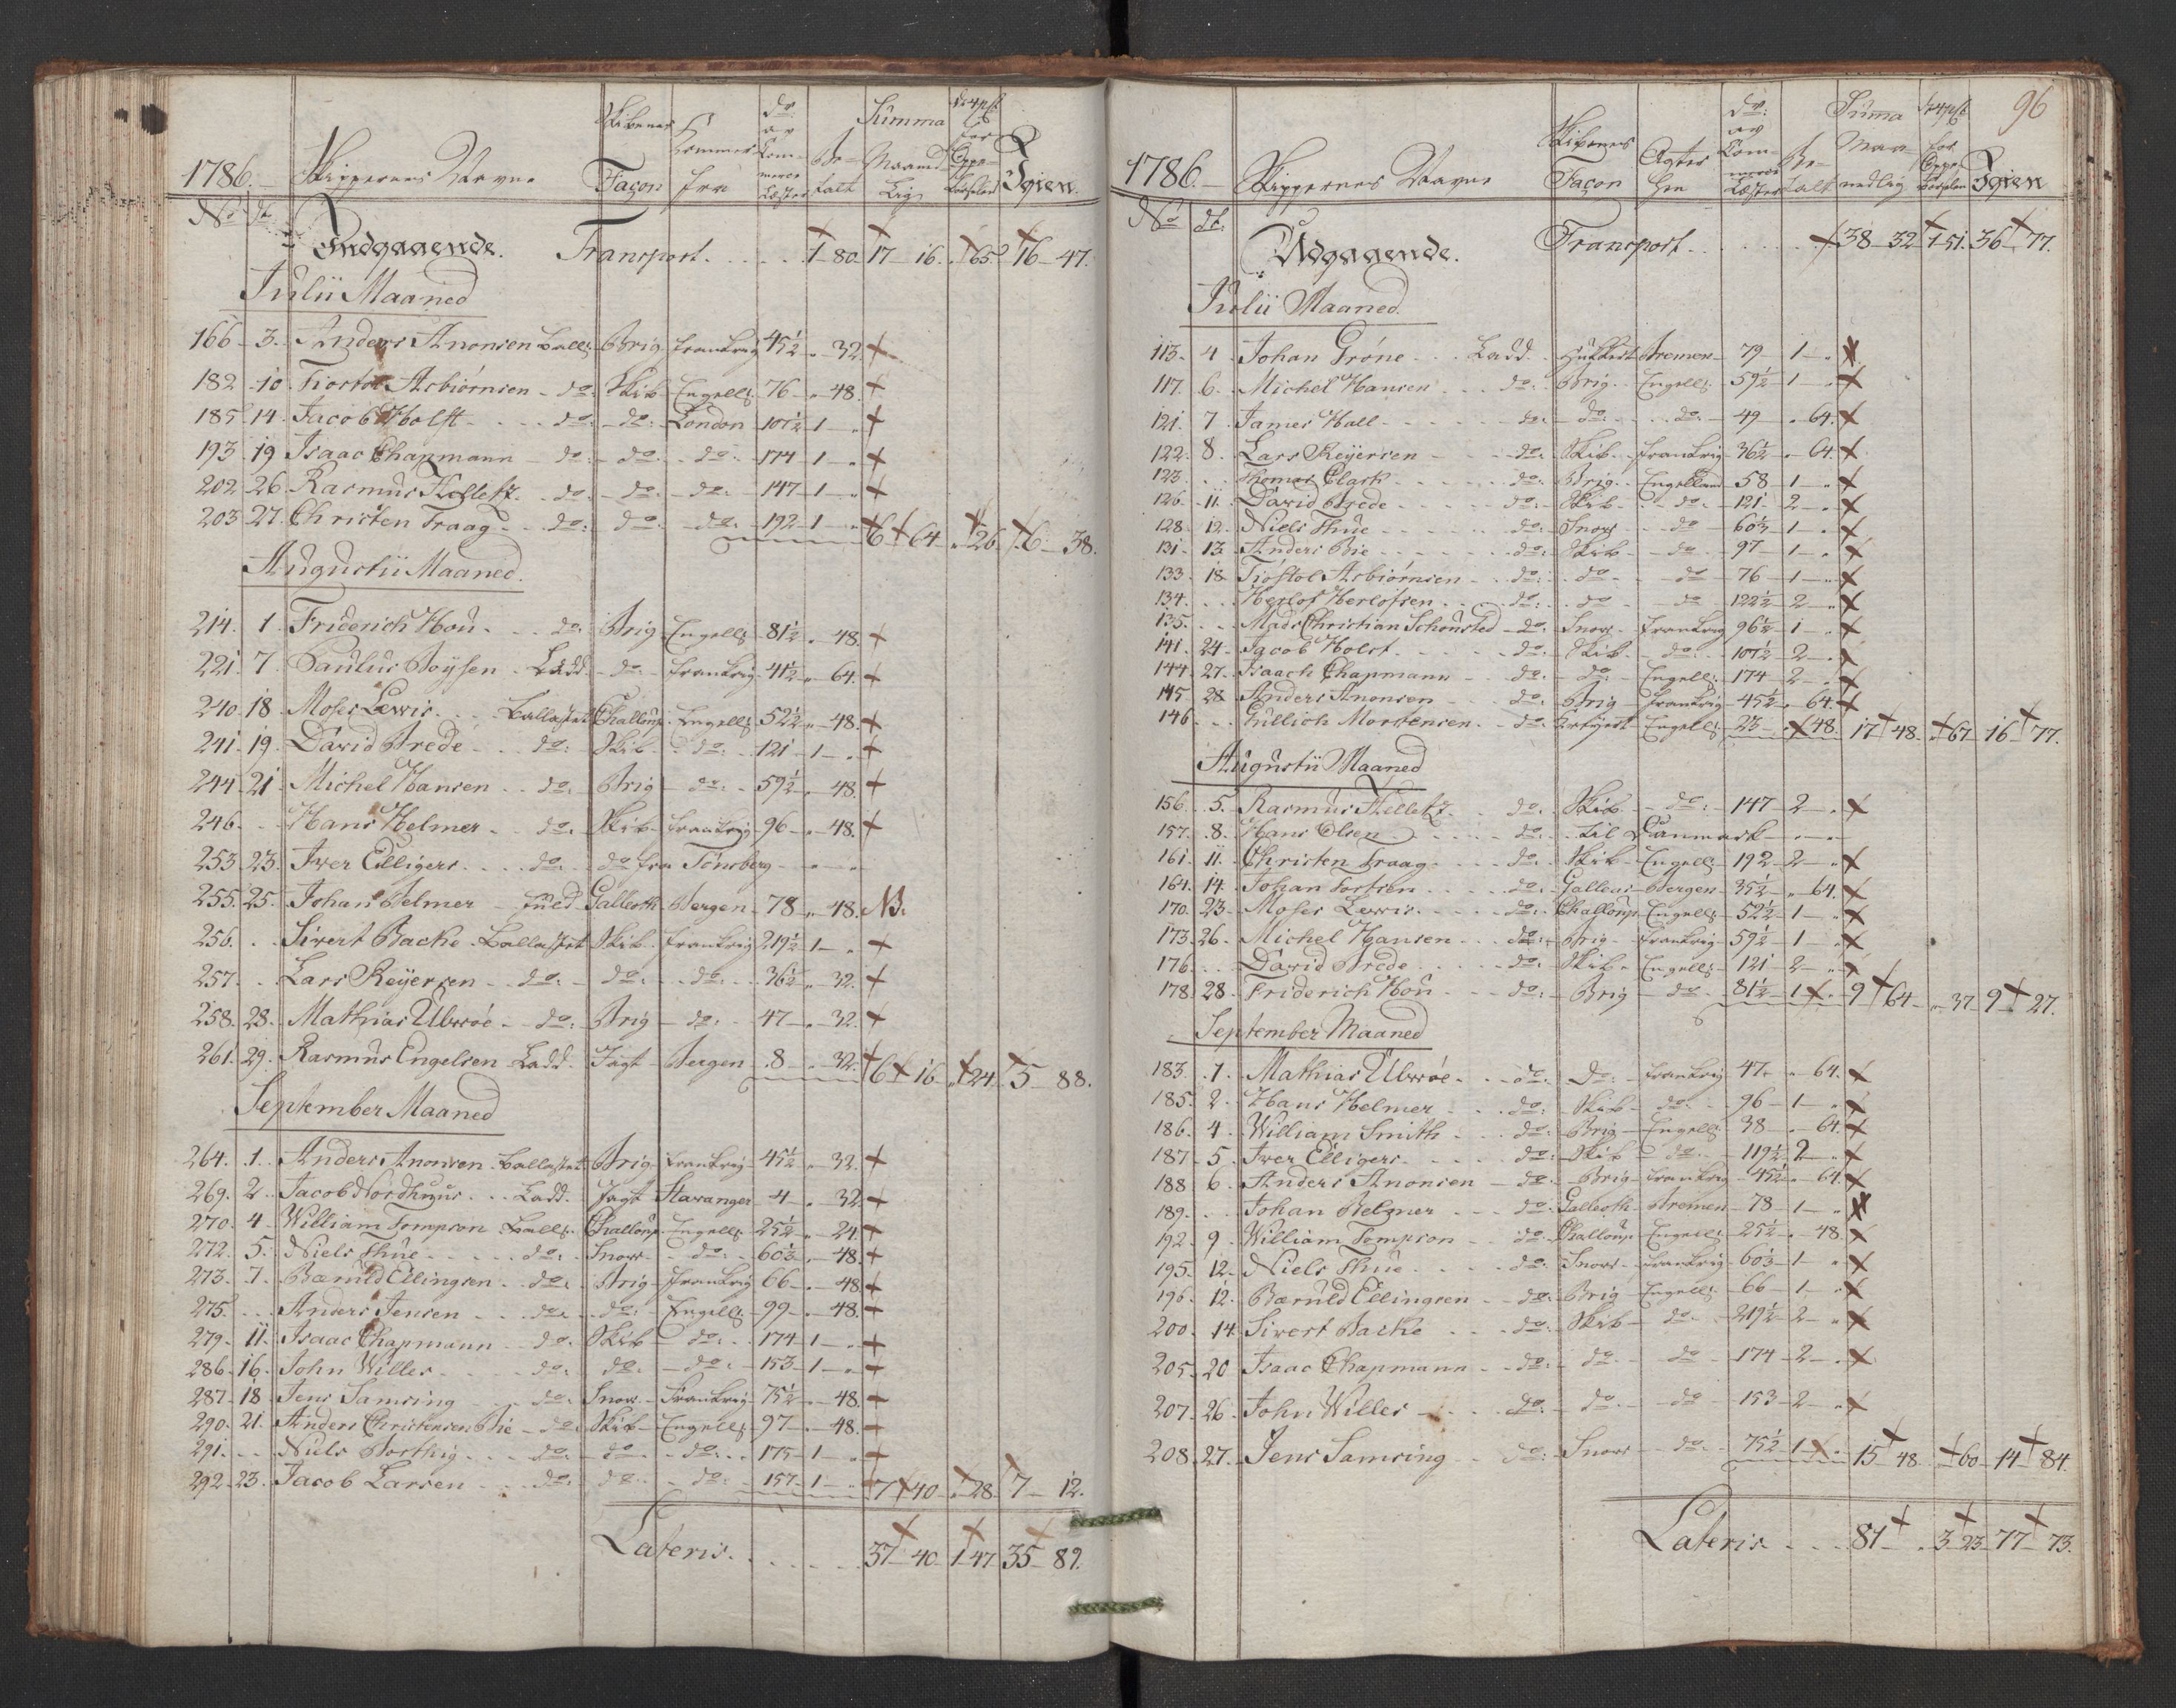 1786. Skippernes Navne Skibenes Façon Kommer fra do: av Commerce Læster Betalt Summa Maanedlig 4 pct for Oppebørselen Igien.
No dt.
Indgaaende. Transport. 1 - 80 17 - 16. 65 16 - 47.
Julii Maaned
166 3. Anders Anonsen Ball: Brig frankrig 45½ " 32.
182 10 Tiostol Asbiørnsen do: Skib Engell: 76 " 48.
185 14. Jacob Holst do: do: London 107½ 1 "
193 19 Isaac Chapmann do: do: do: 174 1 "
202 26 Rasmus Kellefz. do: do: do: 147 1 "
203 27. Christen Fraag do: do: do: 192 1 " 6 64 " 26. 6 38.
Augustii Maaned.
214. 1. Friderich Hou. do: Brig Engell: 81½ " 48.
221 7. Paulus Boysen Ladd do: frankrig 41½ " 64.
240 18 Moses Lewis. Ballastet Challoup Engell: 52½ " 48.
241. 19. David Brede do: Skib do: 121 1 "
244 21 Michel Hansen do: Brig do: 59½ " 48.
246. Hans Helmer do: Skib frankrig 96 " 48.
253 23. Iver Elligers. do: do fra Tønsberg " "
255. 25. Johan Belmer fuld Galleoth Bergen 78 " 48. NB.
256. Sivert Backe Ballastet Skib frankrig 219½ 1 "
257. Lars Reyersen do: do: do: 36½ " 32.
258. 28. Mathias Ubsrøe do: Brig do: 47 " 32.
261. 29. Rasmus Engelsen Ladd. Jagt Bergen 8 " 32. 6 16. " 24. 5 88.
September Maaned
264. 1. Anders Anonsen Ballastet Brig frankrig 45½ " 32.
269. 2. Jacob Nordhuus Ladd. Jagt Stavanger 4 " 32.
270. 4. William Tompson Ball: Challoup Engell: 25½ " 24.
272. 5. Niels Thue do: Snow do: 60½ " 48.
273. 7. Bæruld Ellingsen do: Brig frankrig 66 " 48.
275. Anders Jensen do: do: Engell: 99 " 48.
279. 11. Isaac Chapmann do: Skib do: 174 1 "
286. 16. John Willes do: do: do: 153 1 "
287. 18 Jens Samsing do: Snow Frankrig 75½ " 48.
290. 21. Anders Christensen Bie do: Skib Engell: 97 " 48.
291. Niels do: do do: 175 1 "
292. 23. Jacob Larsen do: do: do: 157 1 " 7 40 " 28. 7 12.
Lateris. 37 40. 1 47. 35 89.
96
1786. Skippernes Navne Skibenes Façon Agter hen do: av Commerce Læster Betalt Suma Maanedlig 4 pct for Oppebørselen Igien
No dt:
Udgaaende. Transport. 38 32 1 51. 36 77.
Julii Maaned.
113. 4 Johan Grøne Ladd. Huckert Bremen 79 1 "
117. 6. Michel Hansen do: Brig. Engell: 59½ 1 "
121. 7. James Hall do: do: do: 49 " 64.
122. 8. Lars Reyersen do: Skib. frankrig 36½ " 64.
123. Thomas Clark do: Brig. Engelland 58 1 "
126. 11. David Brede do: Skib do: 121 2 "
128. 12. Niels Thue do: Snow do 60½ 1 "
131. 13. Anders Bie do: Skib do 97 1 "
133. 18. Tiostol Asbiørnsen do: do do 76 1 "
134. Herlof Herlofsen do: do do 122½ 2 "
135. Mads Christian Schousted do: Snow frankrig 96½ 1 "
141. 24. Jacob Holst do: Skib do: 107½ 2 "
144 27. Isaach Chapmann do: do: Engell: 174 2 "
145 28 Anders Anonsen do: Brig frankrig 45½ " 64.
146 Gullich Mortensen do: Kreyert Engell: 23 " 48. 17 48. " 67 16 77.
Augustii Maaned
156. 5. Rasmus Kellefz do: Skib do: 147 2 "
157. 8. Hans Olsen do: til Danmark " "
161. 11. Christen Fraag do: Skib Engell: 192 2 "
164. 14. Johan do: Galleas Bergen 35½ " 64.
170. 23. Moses Lewis. do: Challoup Engell: 52½ 1 "
173. 26. Michel Hansen do: Brig frankrig 59½ 1 "
176. David Brede do: Skib Engell: 121 2 "
178. 28. Friderich Hou do: Brig do 81½ 1 " 9 64 " 37 9 27.
September Maaned
183. 1. Mathias Ubsrøe do: Do: frankrig 47 " 64.
185. 2. Hans Helmer do: Skib do: 96 1 "
186. 4. William Smith do: Brig Engell: 38 " 64.
187. 5. Iver Elligers. do: Skib do: 119½ 2 "
188 6. Anders Anonsen do: Brig frankrig 45½ " 64.
189. Johan Belmer do: Galleoth Bremen 78 1 "
192. 9. William Tompson do: Challoup Engell: 25½ " 48.
195. 12. Niels Thue do: Snow frankrig 60½ 1 "
196. 12. Bæruld Ellingsen do: Brig Engell: 66 1 "
200. 14. Sivert Backe do: Skib do 219½ 2 "
205. 20 Isaac Chapmann do: do: do 174 2 "
207. 26. John Willes do: do: do 153 2 "
208. 27. Jens Samsing do: Snow do: 75½ 1 " 15 48. " 60 14 84.
Lateris 81 " 3 23 77 73.